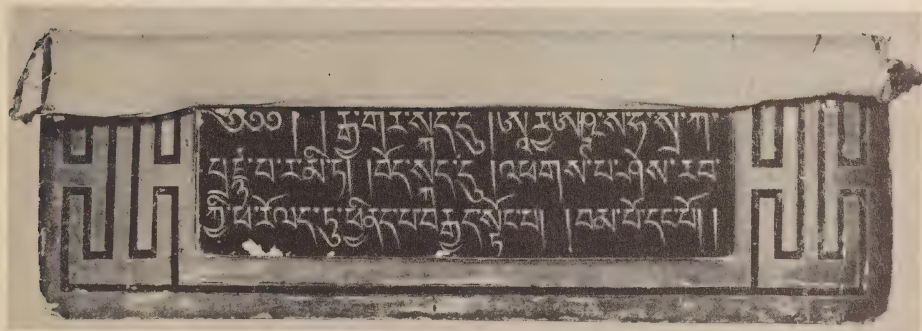 ༄༅༅། །རྒྱ་གར་སྐད་དུ། ཨཱརྱ་ཨཥྚ་ས་ཧ་སྲི་ཀ་
པྲཛྙཱ་པཱ་ར་མི་ཏཱ། །བོད་སྐད་དུ། འཕགས་པ་ཤེས་རབ་
ཀྱི་ཕ་རོལ་ཏུ་ཕྱིན་པ་བརྒྱད་སྟོང་པ། །བམ་པོ་དང་པོ།།